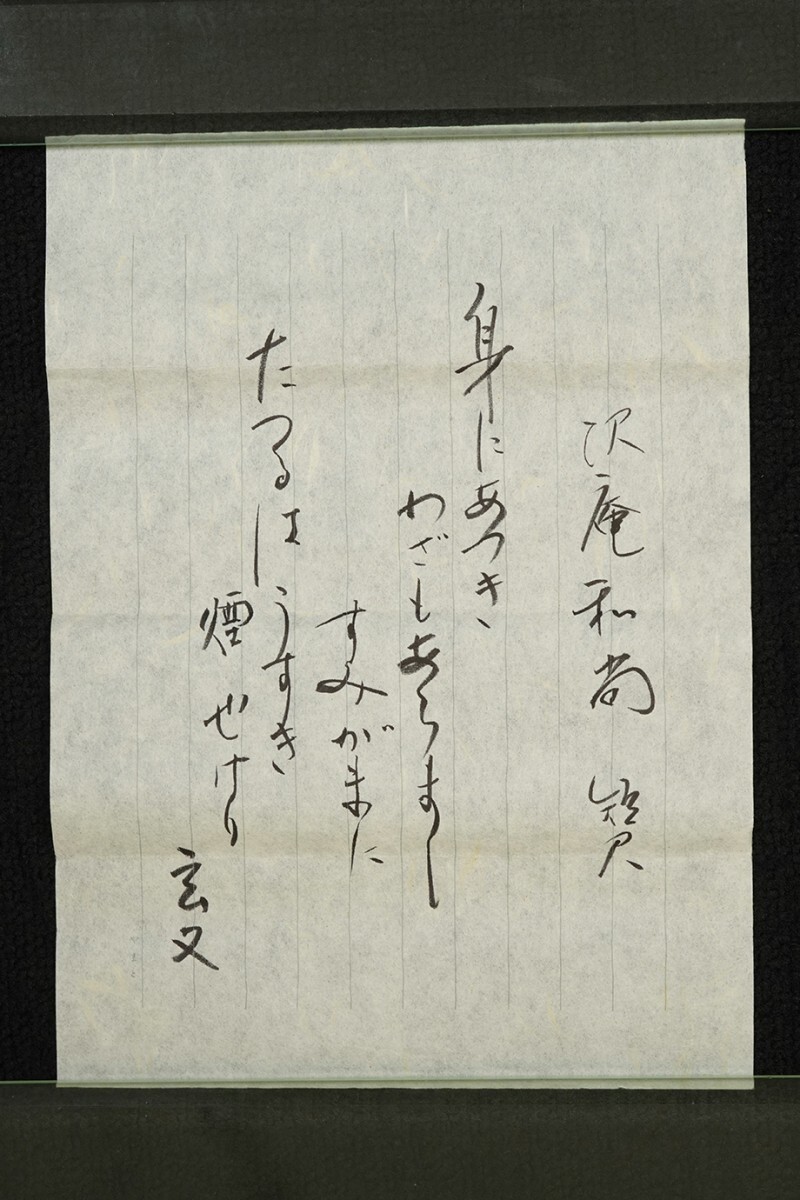 沢庵和尚 賛
身にあつき
わざもあらまし
すみがまに
たつるはうすき
煙也けり
玄又